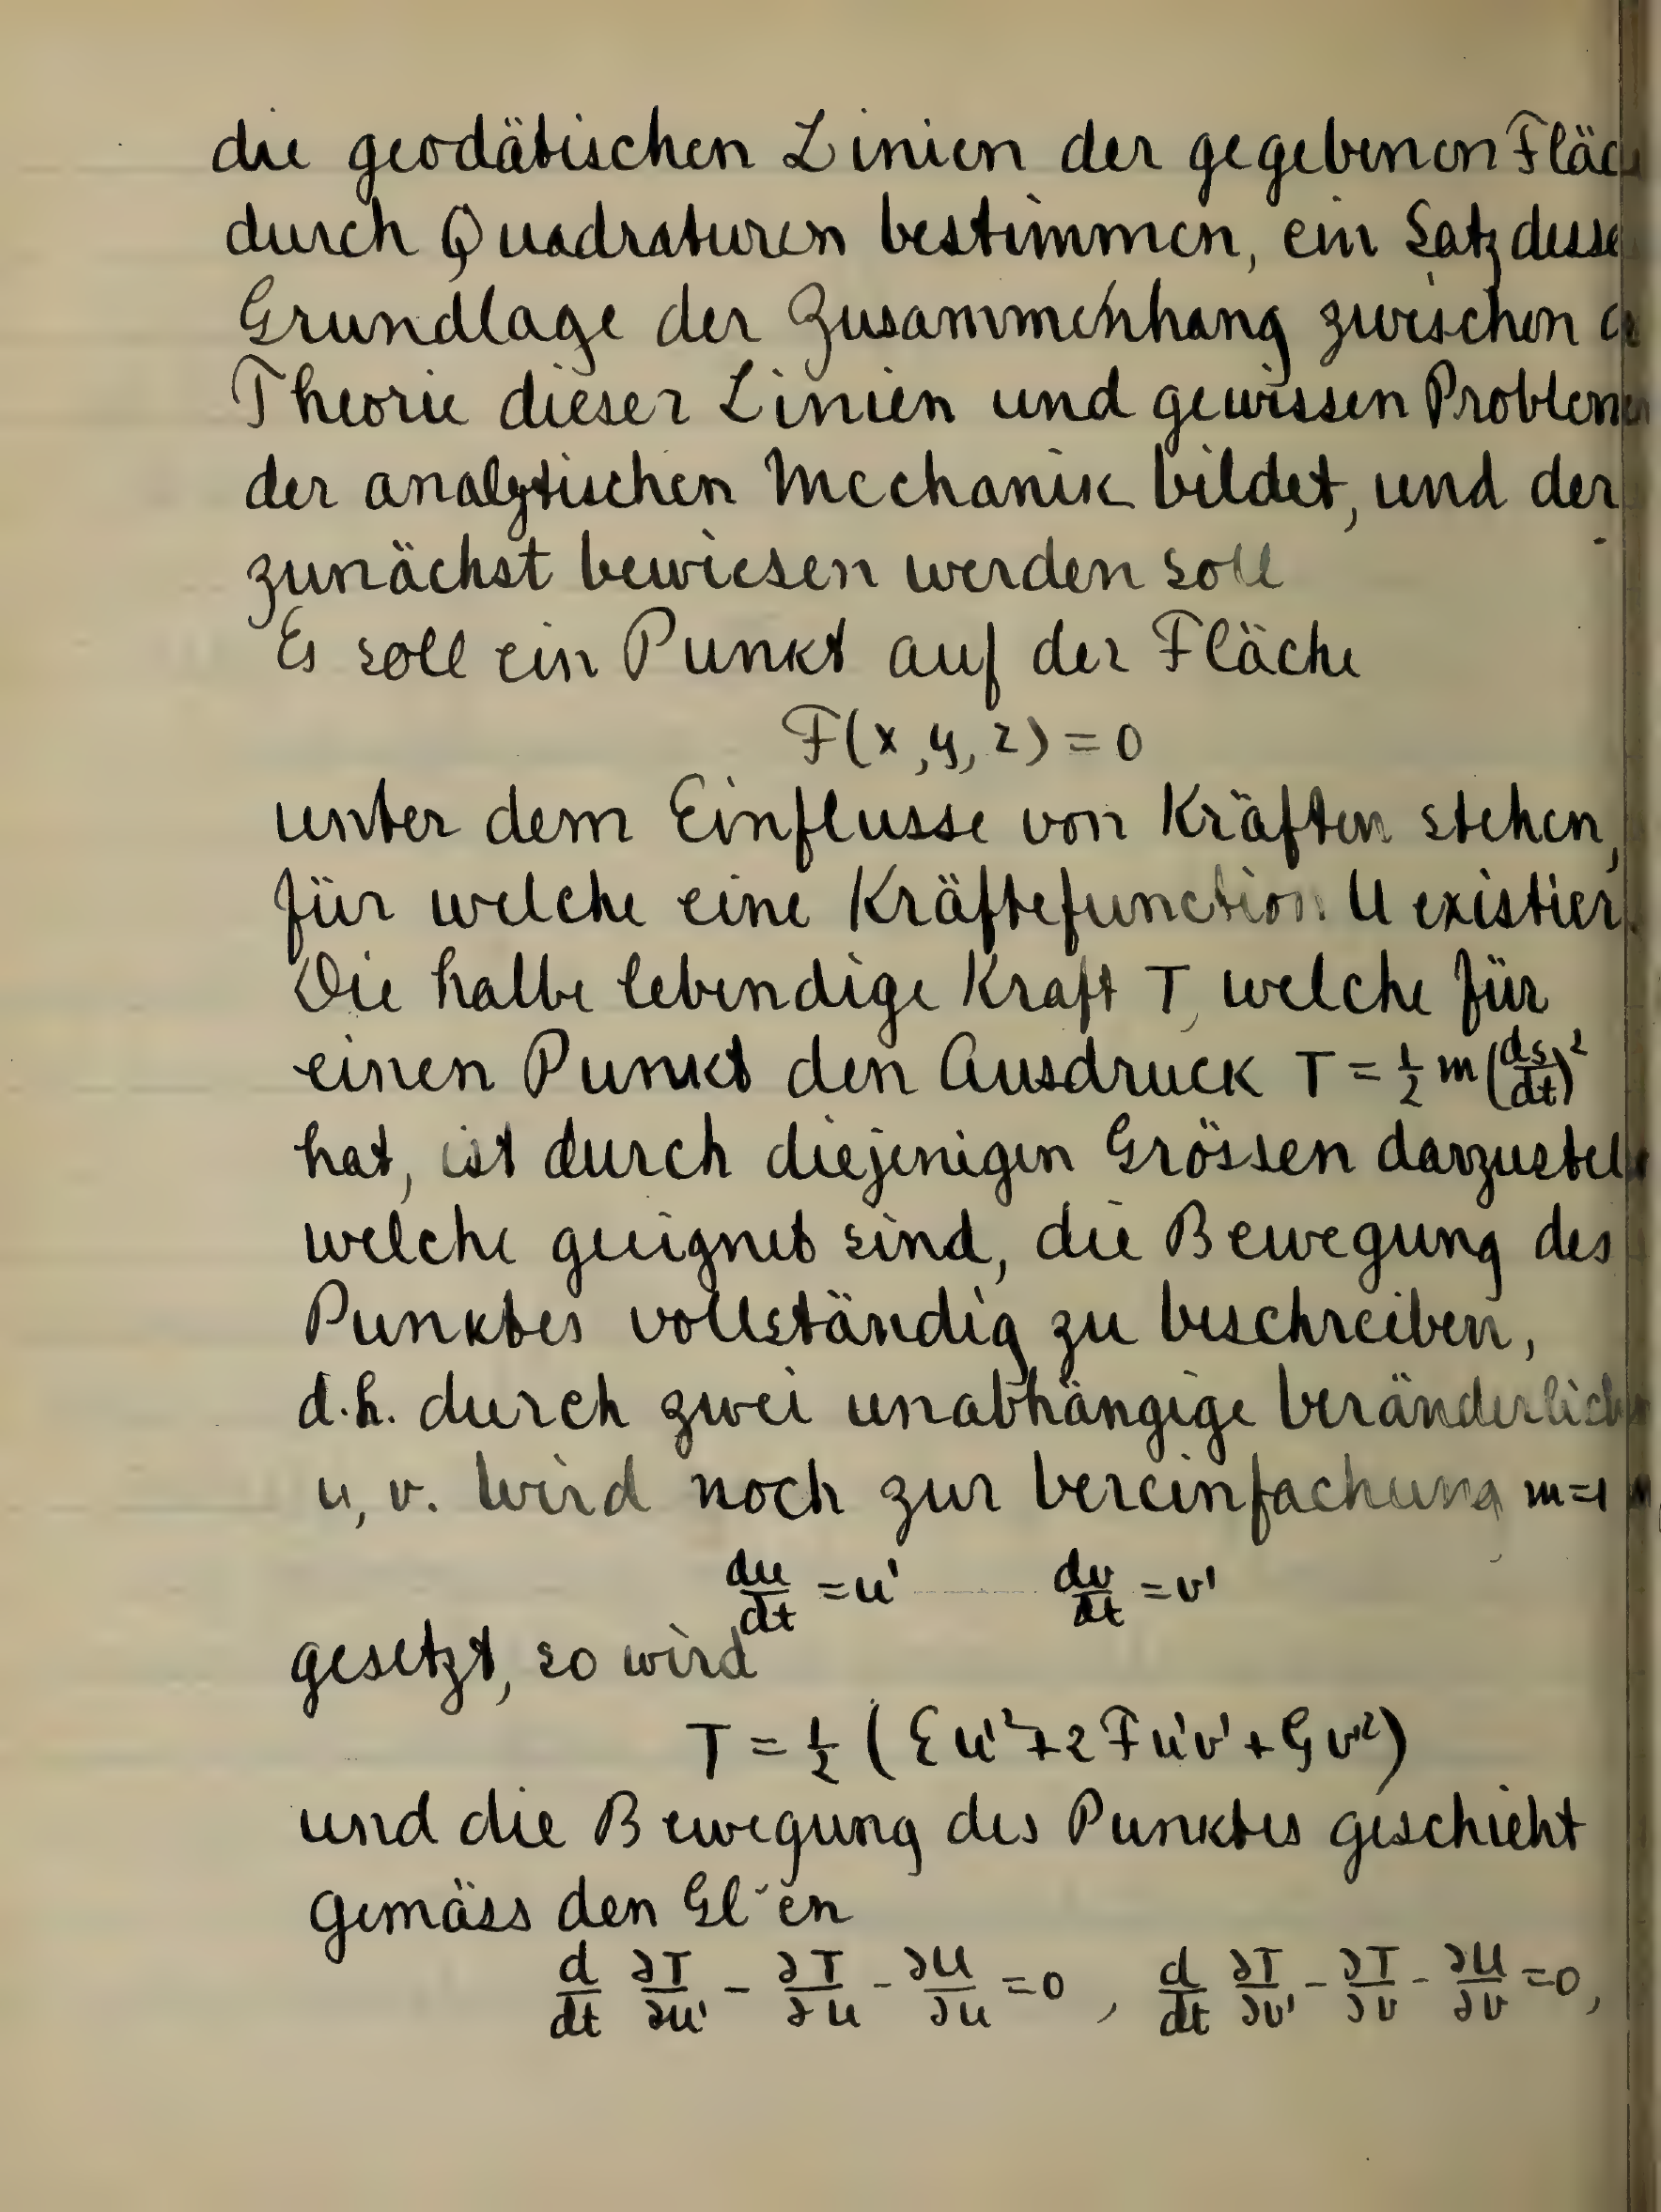 die geodätischen Linien der gegebenen Fläc
durch Quadraturen bestimmen, ein Satz desse
Grundlage der Zusammenhang zwischen
Theorie dieser Linien und gewissen Probleme
der analytischen Mechanik bildet, und der
zunächst bewiesen werden soll
Es soll ein Punkt auf der Fläche
F(x,y,z)=0
unter dem Einflusse von Kräften stehen,
für welche eine Kräftefunction U existier
Die halbe lebendige Kraft T, welche für
einen Punkt den Ausdruck T = ½ m (ds/dt)²
hat, ist durch diejenigen Grössen darzustel
welche geeignet sind, die Bewegung des
Punktes vollständig zu beschreiben,
d.h. durch zwei unabhängige Veränderlich
u, v. Wird noch zur Vereinfachung m=1
du/dt = u' dv/dt = v'
gesetzt, so wird
T = ½ (Eu'²+2Fu'v'+Gv'²)
und die Bewegung des Punktes geschieht
gemäss den Gl´en
d/dt ∂T/∂u' - ∂T/∂u - ∂U/∂u = 0, d/dt ∂T/∂v' - ∂T/∂v - ∂U/∂v = 0,